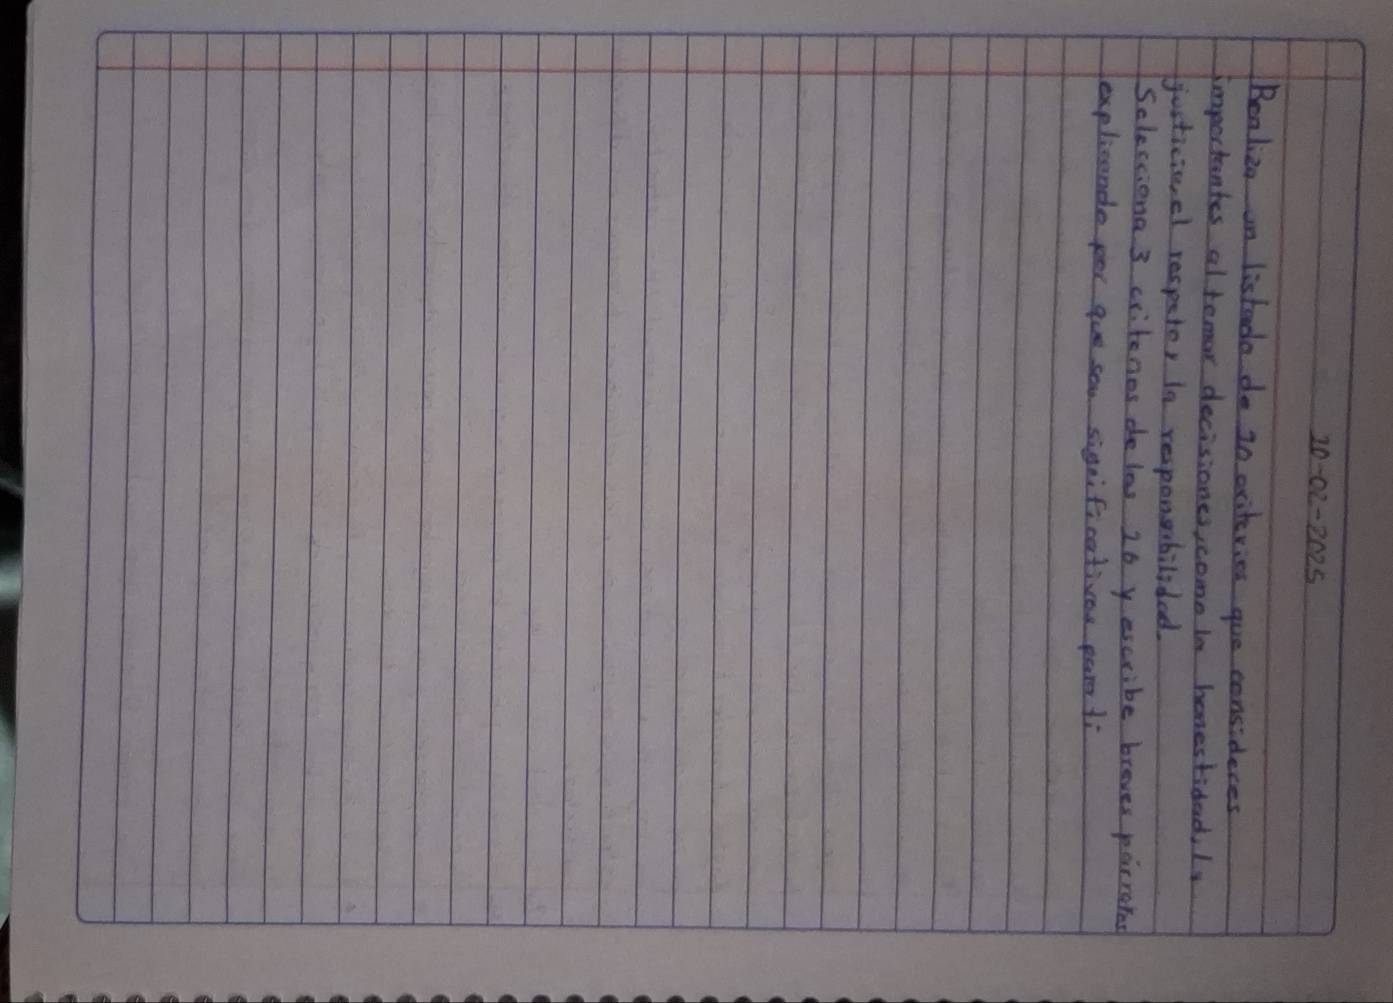 10-02-2025
Realiza un listado de 20 criterios que consideres
importantes al tomar decisiones, como la honestidad, la
justicia, el respeto y la responsabilidad.
Selecciona 3 criterios de los 20 y escribe breves párrafos
explicando por que son significativos para ti